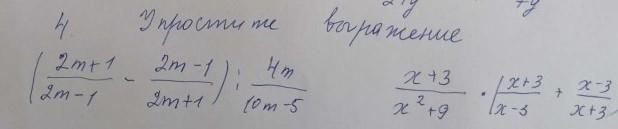 4. Упростите выражение
(\frac{2m+1}{2m-1} - \frac{2m-1}{2m+1}) : \frac{4m}{10m-5}
\frac{x+3}{x^2+9} \cdot (\frac{x+3}{x-3} + \frac{x-3}{x+3}